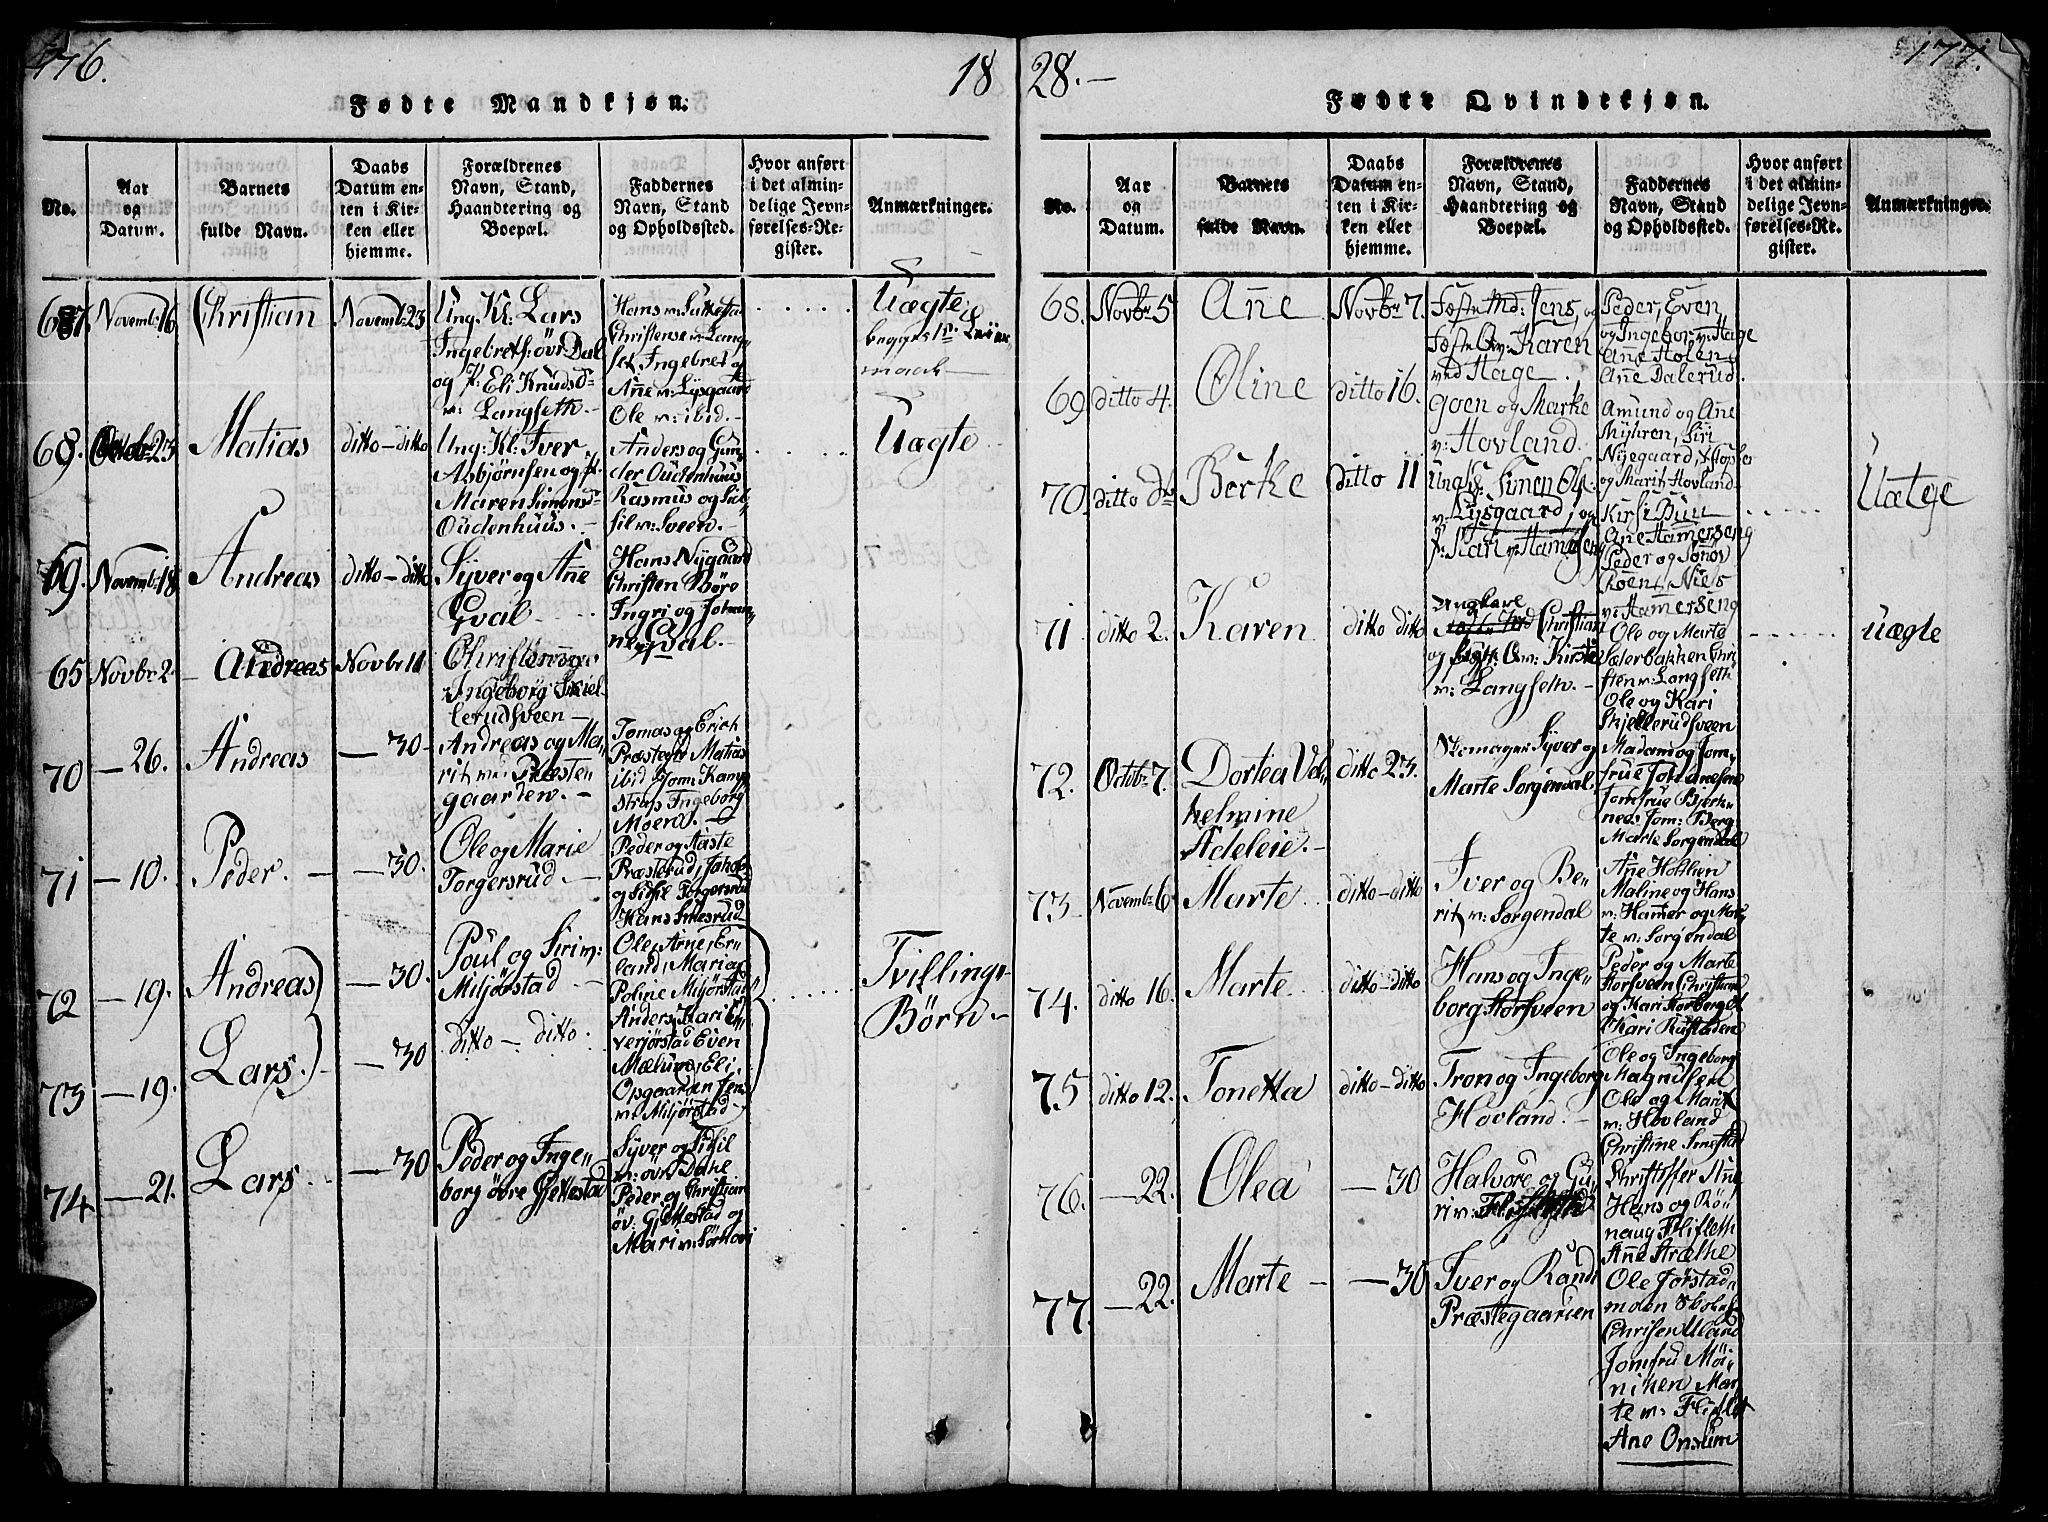 176.
18
Fødte Mandkjøn.
No.
Aar
og
Datum.
Barnets
fulde Navn.
Daabs
Datum en-
ten i Kir-
ken eller
hjemme.
Forældrenes
Navn, Stand,
Haandtering og
Boepæl.
Faddernes
Navn, Stand
og Opholdssted.
Hvor anført
i det almin-
delige Jevn-
førelses-Re-
gister.
Anmærkninger.
67. Novembr 16 Christian Novemb: 23
Ung. Kl: Lars
Ingebretf: övr Dal
og P: Eli Knudsd
v: Langseth.
Christense v: Lang-
set, Ingebret og
Anne v: Lysgaard
Ole v: ibid.
Uægte
begges 1ste Leier-
maal
68. Octobr 23 Matias ditto - ditto
Ung: Kl: Iver
Asbjørnsen og P:
Maren Simonsd
Oudenhuus.
Anders og Gun-
der Oudenhuus
Rasmus og Sid-
sil v: Sveen.
Uægte
69. Novemb: 18 Andreas ditto - ditto
Syver og Anne
Qval
Hans Nygaard
Christen Børo
Ingri og Johan-
ne Qval.
65 Novbr 2 Andreas Novbr 11
Christen og
Ingeborg Skiel-
lerudsveen
70 - 26. Andreas - 30
Andreas og Ma-
rit v: Præste-
gaarden.
Tomas og Erich
Præstegrd Matias
ibid Jom: Kamp-
strup Ingeborg
Moen.
71 - 10. Peder. - 30.
Ole og Marie
Torgersrud
Peder og Aaste
Præsterud, Johan
og Sidsil Torgersrud
Hans Smesrud
72 - 19. Andreas - 30.
Poul og Siri v:
Miljørstad
Ole, Arne, Er-
land, Mari og
Poline Miljørstad
Tvillinge-
Børn
73 - 19. Lars. - 30
ditto - ditto.
Anders, Kari Ö-
verjørstad Even
Mælum, Eli
Opgaarden Jens
v: Miljørstad
74 - 21. Lars - 30
Peder og Inge-
borg övre Gjettestad
Syver og Sidsil
v: övr Dahe
Peder og Christian
öv: Gjettestad og
Mari v: Sørhovi
28.
177.
Fødte Qvindekjøn.
No.
Aar
og
Datum.
Barnets
fulde Navn.
Daabs
Datum en-
ten i Kir-
ken eller
hjemme.
Forældrenes
Navn, Stand,
Haandtering og
Boepæl.
Faddernes
Navn, Stand
og Opholdssted.
Hvor anført
i det almin-
delige Jevn-
førelses-Re-
gister.
Anmærkninger.
68. Novbr 5 Anne Novbr 7.
Føste Md: Jens, og
Føste Qv: Karen
ved Hage.
Peder, Even
og Ingebor v: Hage
Anne Holen
Anne Dalerud.
69 ditto 4. Oline ditto 16.
Goen og Marke
v: Hovland
Amund og Ane
Myhren, Siri
Nyegaard, Kristopher
og Marit Hovland
70. ditto do Berte ditto 11
Ungk: Simen Ols:
v: Lysgaard, og
P: Kari v: Hamerseng
Kirsti Bun
Ane Hamerseng
Peder og Sønov
Roen, Niels
v: Hamerseng
Uætge
71 ditto 2. Karen ditto ditto
Ungkarl
Christian
og Qv: Kirsti
v: Langseth.
Ole og Marte
Sæterbakken Chri-
sten v: Langseth
Ole og Kari
Skjellerudsveen
uægte
72. Octobr 7. Dortea Vil-
helmine
Adeleie. ditto 23.
Skomager: Syver og
Marte Sørgendal
Madam og Jom-
frue Johannesen
Jomfrue Bjerk-
nes Jom: Berg
Marte Sorgendal
73 Novemb: 6. Marte ditto - ditto
Iver og Be-
rit v: Sørgendal
Ane Hollien
Maline og Hans
v: Hammer og Mar-
te v: Sørgendal
74. ditto 16. Marte ditto - ditto
Hans og Inge-
borg Storsveen
Peder og Marte
Storsveen Christiane
og Kari Storberget
Kari Rustaden
75 ditto 12. Tonetta ditto - ditto
Tron og Ingeborg
Hovland.
Ole og Ingeborg
Magnusen
Ole og Marit
v: Hovland
76. - 22. Olea - 30
Halvore og Gu-
ri v:
Christine Smestad
Christoffer Anne
Hans og Rön-
naug Fliflette
Anne Stræthe
77. - 22. Marte - 30
Iver og Randi
Præstegaarden
Ole Jørstad
Jomfru Möi-
niken Mar-
te v: Fliflet
Ane Onsum